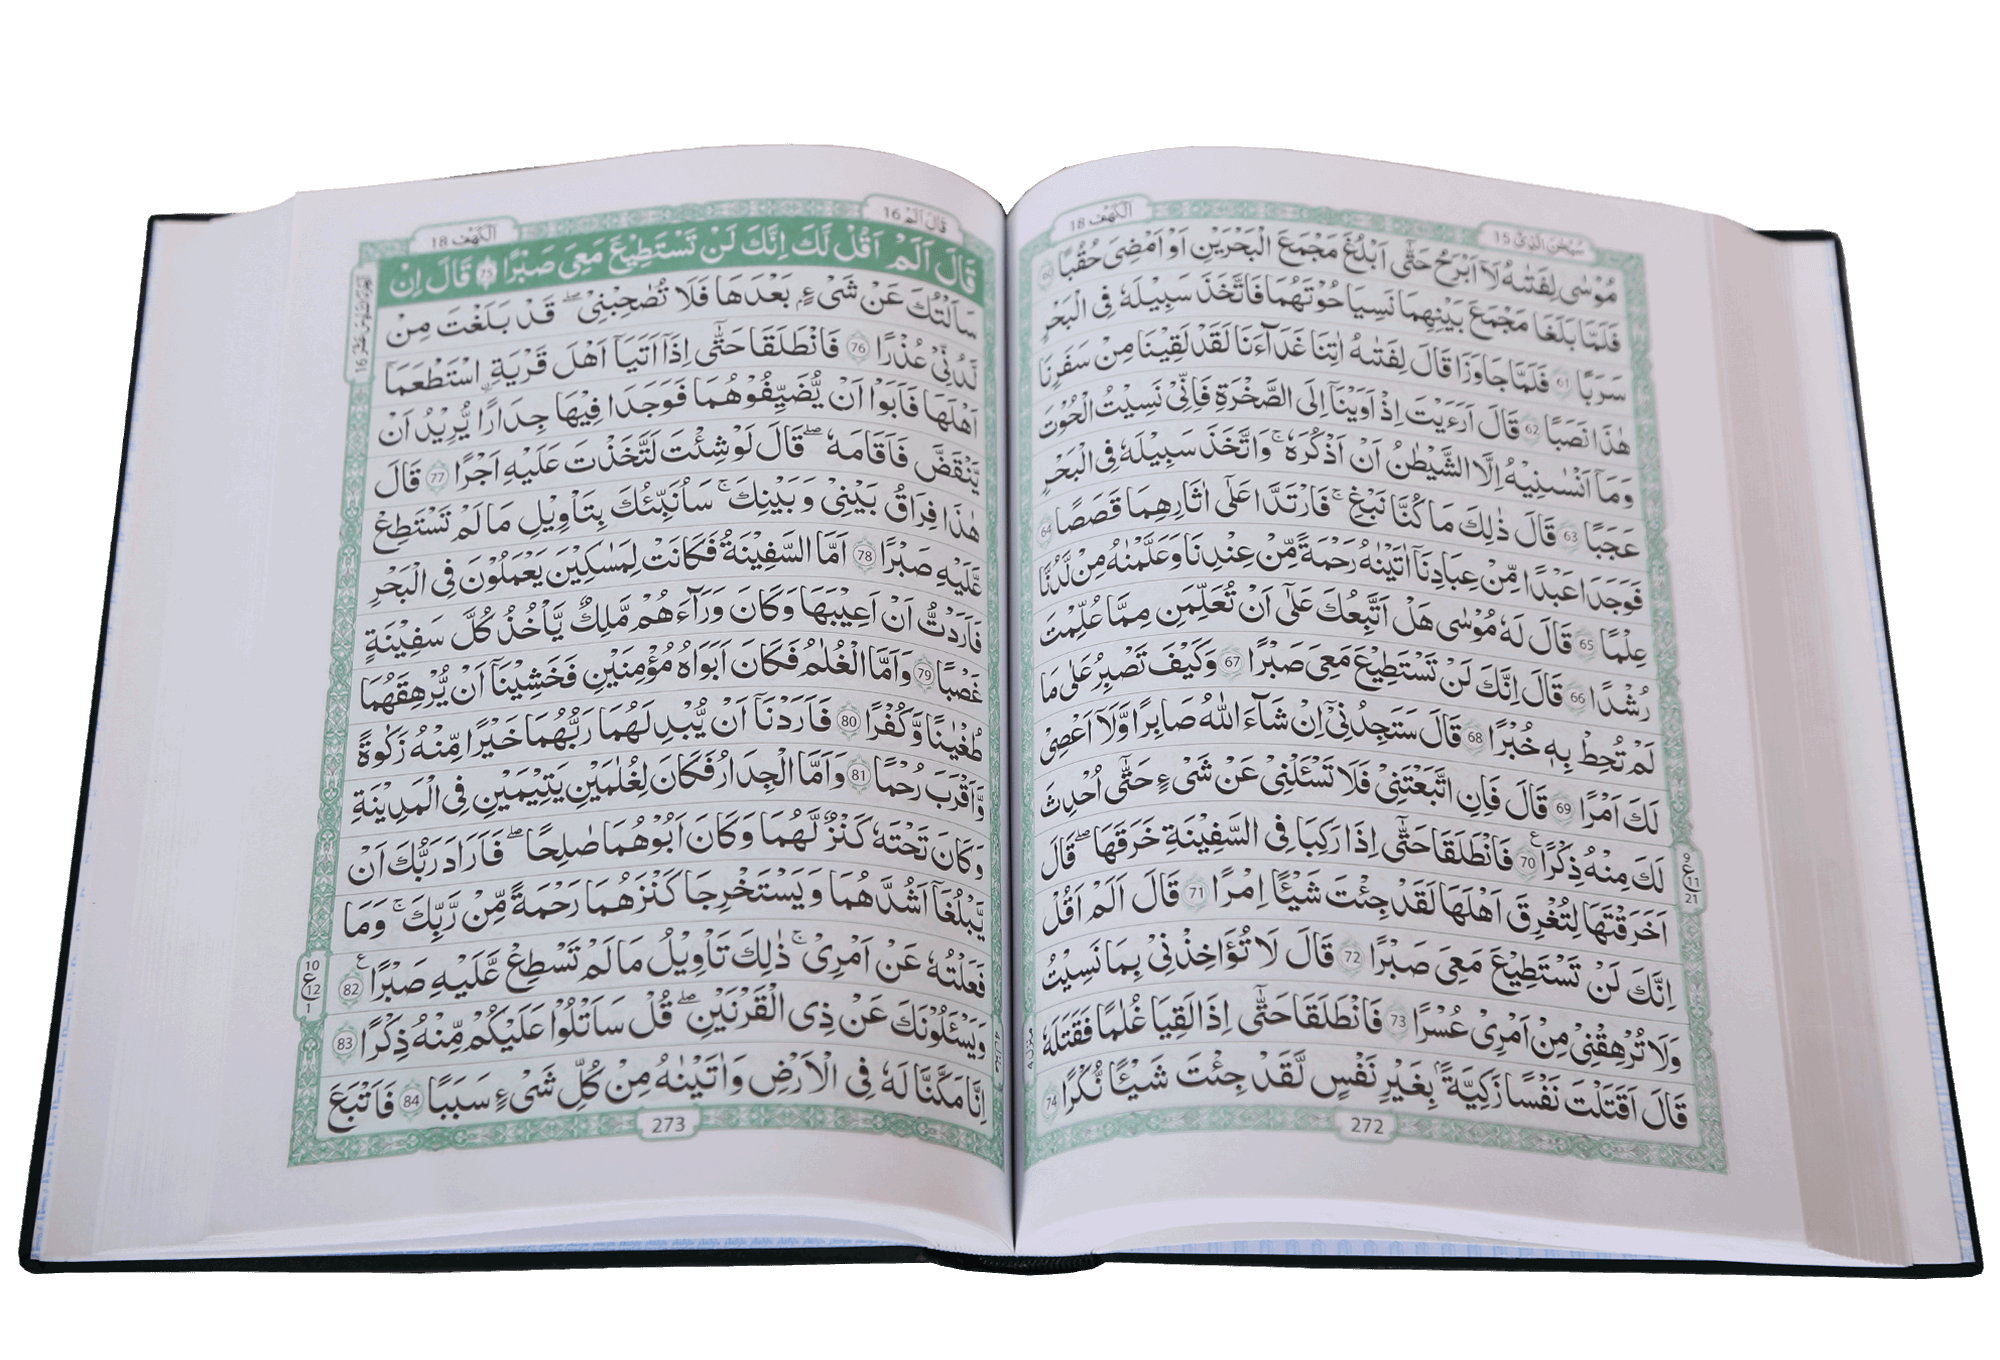 الكهف 18
سبحن الذي 15
مُوْسٰى لِفَتٰىهُ لَاۤ اَبْرَحُ حَتّٰۤى اَبْلُغَ مَجْمَعَ الْبَحْرَيْنِ اَوْ اَمْضِىَ حُقُبًا 60
فَلَمَّا بَلَغَا مَجْمَعَ بَيْنِهِمَا نَسِيَا حُوْتَهُمَا فَاتَّخَذَ سَبِيْلَهٗ فِى الْبَحْرِ
سَرَبًا 61 فَلَمَّا جَاوَزَا قَالَ لِفَتٰىهُ اٰتِنَا غَدَآءَنَا لَقَدْ لَقِيْنَا مِنْ سَفَرِنَا
هٰذَا نَصَبًا 62 قَالَ اَرَءَيْتَ اِذْ اَوَيْنَاۤ اِلَى الصَّخْرَةِ فَاِنِّىْ نَسِيْتُ الْحُوْتَ
وَمَاۤ اَنْسٰىنِيْهُ اِلَّا الشَّيْطٰنُ اَنْ اَذْكُرَهٗ ۚ وَاتَّخَذَ سَبِيْلَهٗ فِى الْبَحْرِ
عَجَبًا 63 قَالَ ذٰلِكَ مَا كُنَّا نَبْغِ ۚ فَارْتَدَّا عَلٰٓى اٰثَارِهِمَا قَصَصًا 64
فَوَجَدَا عَبْدًا مِّنْ عِبَادِنَاۤ اٰتَيْنٰهُ رَحْمَةً مِّنْ عِنْدِنَا وَعَلَّمْنٰهُ مِنْ لَّدُنَّا
عِلْمًا 65 قَالَ لَهٗ مُوْسٰى هَلْ اَتَّبِعُكَ عَلٰٓى اَنْ تُعَلِّمَنِ مِمَّا عُلِّمْتَ
رُشْدًا 66 قَالَ اِنَّكَ لَنْ تَسْتَطِيْعَ مَعِىَ صَبْرًا 67 وَكَيْفَ تَصْبِرُ عَلٰى مَا
لَمْ تُحِطْ بِهٖ خُبْرًا 68 قَالَ سَتَجِدُنِىْۤ اِنْ شَآءَ اللّٰهُ صَابِرًا وَّلَاۤ اَعْصِىْ
لَكَ اَمْرًا 69 قَالَ فَاِنِ اتَّبَعْتَنِىْ فَلَا تَسْـَٔلْنِىْ عَنْ شَىْءٍ حَتّٰۤى اُحْدِثَ
لَكَ مِنْهُ ذِكْرًا 70 فَانْطَلَقَا حَتّٰۤى اِذَا رَكِبَا فِى السَّفِيْنَةِ خَرَقَهَا ؕ قَالَ
اَخَرَقْتَهَا لِتُغْرِقَ اَهْلَهَا لَقَدْ جِئْتَ شَيْـًٔا اِمْرًا 71 قَالَ اَلَمْ اَقُلْ
اِنَّكَ لَنْ تَسْتَطِيْعَ مَعِىَ صَبْرًا 72 قَالَ لَا تُؤَاخِذْنِىْ بِمَا نَسِيْتُ
وَلَا تُرْهِقْنِىْ مِنْ اَمْرِىْ عُسْرًا 73 فَانْطَلَقَا حَتّٰۤى اِذَا لَقِيَا غُلٰمًا فَقَتَلَهٗ
قَالَ اَقَتَلْتَ نَفْسًا زَكِيَّةً بِغَيْرِ نَفْسٍ لَّقَدْ جِئْتَ شَيْـًٔا نُّكْرًا 74
9
ع
11
21
منزل 4
272
الكهف 18
قال الم 16
قَالَ اَلَمْ اَقُلْ لَّكَ اِنَّكَ لَنْ تَسْتَطِيْعَ مَعِىَ صَبْرًا 75 قَالَ اِنْ
سَاَلْتُكَ عَنْ شَىْءٍۢ بَعْدَهَا فَلَا تُصٰحِبْنِىْ ۖ قَدْ بَلَغْتَ مِنْ
لَّدُنِّىْ عُذْرًا 76 فَانْطَلَقَا حَتّٰۤى اِذَاۤ اَتَيَاۤ اَهْلَ قَرْيَةِ اسْتَطْعَمَاۤ
اَهْلَهَا فَاَبَوْا اَنْ يُّضَيِّفُوْهُمَا فَوَجَدَا فِيْهَا جِدَارًا يُّرِيْدُ اَنْ
يَّنْقَضَّ فَاَقَامَهٗ ۖ قَالَ لَوْ شِئْتَ لَتَّخَذْتَ عَلَيْهِ اَجْرًا 77 قَالَ
هٰذَا فِرَاقُ بَيْنِىْ وَبَيْنِكَ ۚ سَاُنَبِّئُكَ بِتَاْوِيْلِ مَا لَمْ تَسْتَطِعْ
عَّلَيْهِ صَبْرًا 78 اَمَّا السَّفِيْنَةُ فَكَانَتْ لِمَسٰكِيْنَ يَعْمَلُوْنَ فِى الْبَحْرِ
فَاَرَدْتُّ اَنْ اَعِيْبَهَا وَكَانَ وَرَآءَهُمْ مَّلِكٌ يَّاْخُذُ كُلَّ سَفِيْنَةٍ
غَصْبًا 79 وَاَمَّا الْغُلٰمُ فَكَانَ اَبَوَاهُ مُؤْمِنَيْنِ فَخَشِيْنَاۤ اَنْ يُّرْهِقَهُمَا
طُغْيَانًا وَّكُفْرًا 80 فَاَرَدْنَاۤ اَنْ يُّبْدِلَهُمَا رَبُّهُمَا خَيْرًا مِّنْهُ زَكٰوةً
وَّاَقْرَبَ رُحْمًا 81 وَاَمَّا الْجِدَارُ فَكَانَ لِغُلٰمَيْنِ يَتِيْمَيْنِ فِى الْمَدِيْنَةِ
وَكَانَ تَحْتَهٗ كَنْزٌ لَّهُمَا وَكَانَ اَبُوْهُمَا صَالِحًا ۖ فَاَرَادَ رَبُّكَ اَنْ
يَّبْلُغَاۤ اَشُدَّهُمَا وَيَسْتَخْرِجَا كَنْزَهُمَا رَحْمَةً مِّنْ رَّبِّكَ ۚ وَمَا
فَعَلْتُهٗ عَنْ اَمْرِىْ ۚ ذٰلِكَ تَاْوِيْلُ مَا لَمْ تَسْطِعْ عَّلَيْهِ صَبْرًا 82
وَيَسْـَٔلُوْنَكَ عَنْ ذِى الْقَرْنَيْنِ ۖ قُلْ سَاَتْلُوْا عَلَيْكُمْ مِّنْهُ ذِكْرًا 83
اِنَّا مَكَّنَّا لَهٗ فِى الْاَرْضِ وَاٰتَيْنٰهُ مِنْ كُلِّ شَىْءٍ سَبَبًا 84 فَاَتْبَعَ
10
ع
12
1
273